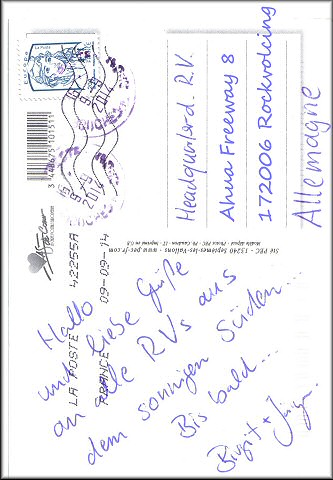 Hallo
und liebe Grüße
an alle RVs aus
dem sonnigen Süden...
Bis bald...
Birgit + Jürgen
Headquarterd. R.V.
Ahua Freeway 8
172006 Rockvolcing
Allemagne
EUROPE
La Poste
9-9
2014
LA POSTE 42255A
FRANCE 09-09-14
3 448675 101511
Sté PEC - 13240 Septèmes-les-Vallons - www.pec-fr.com